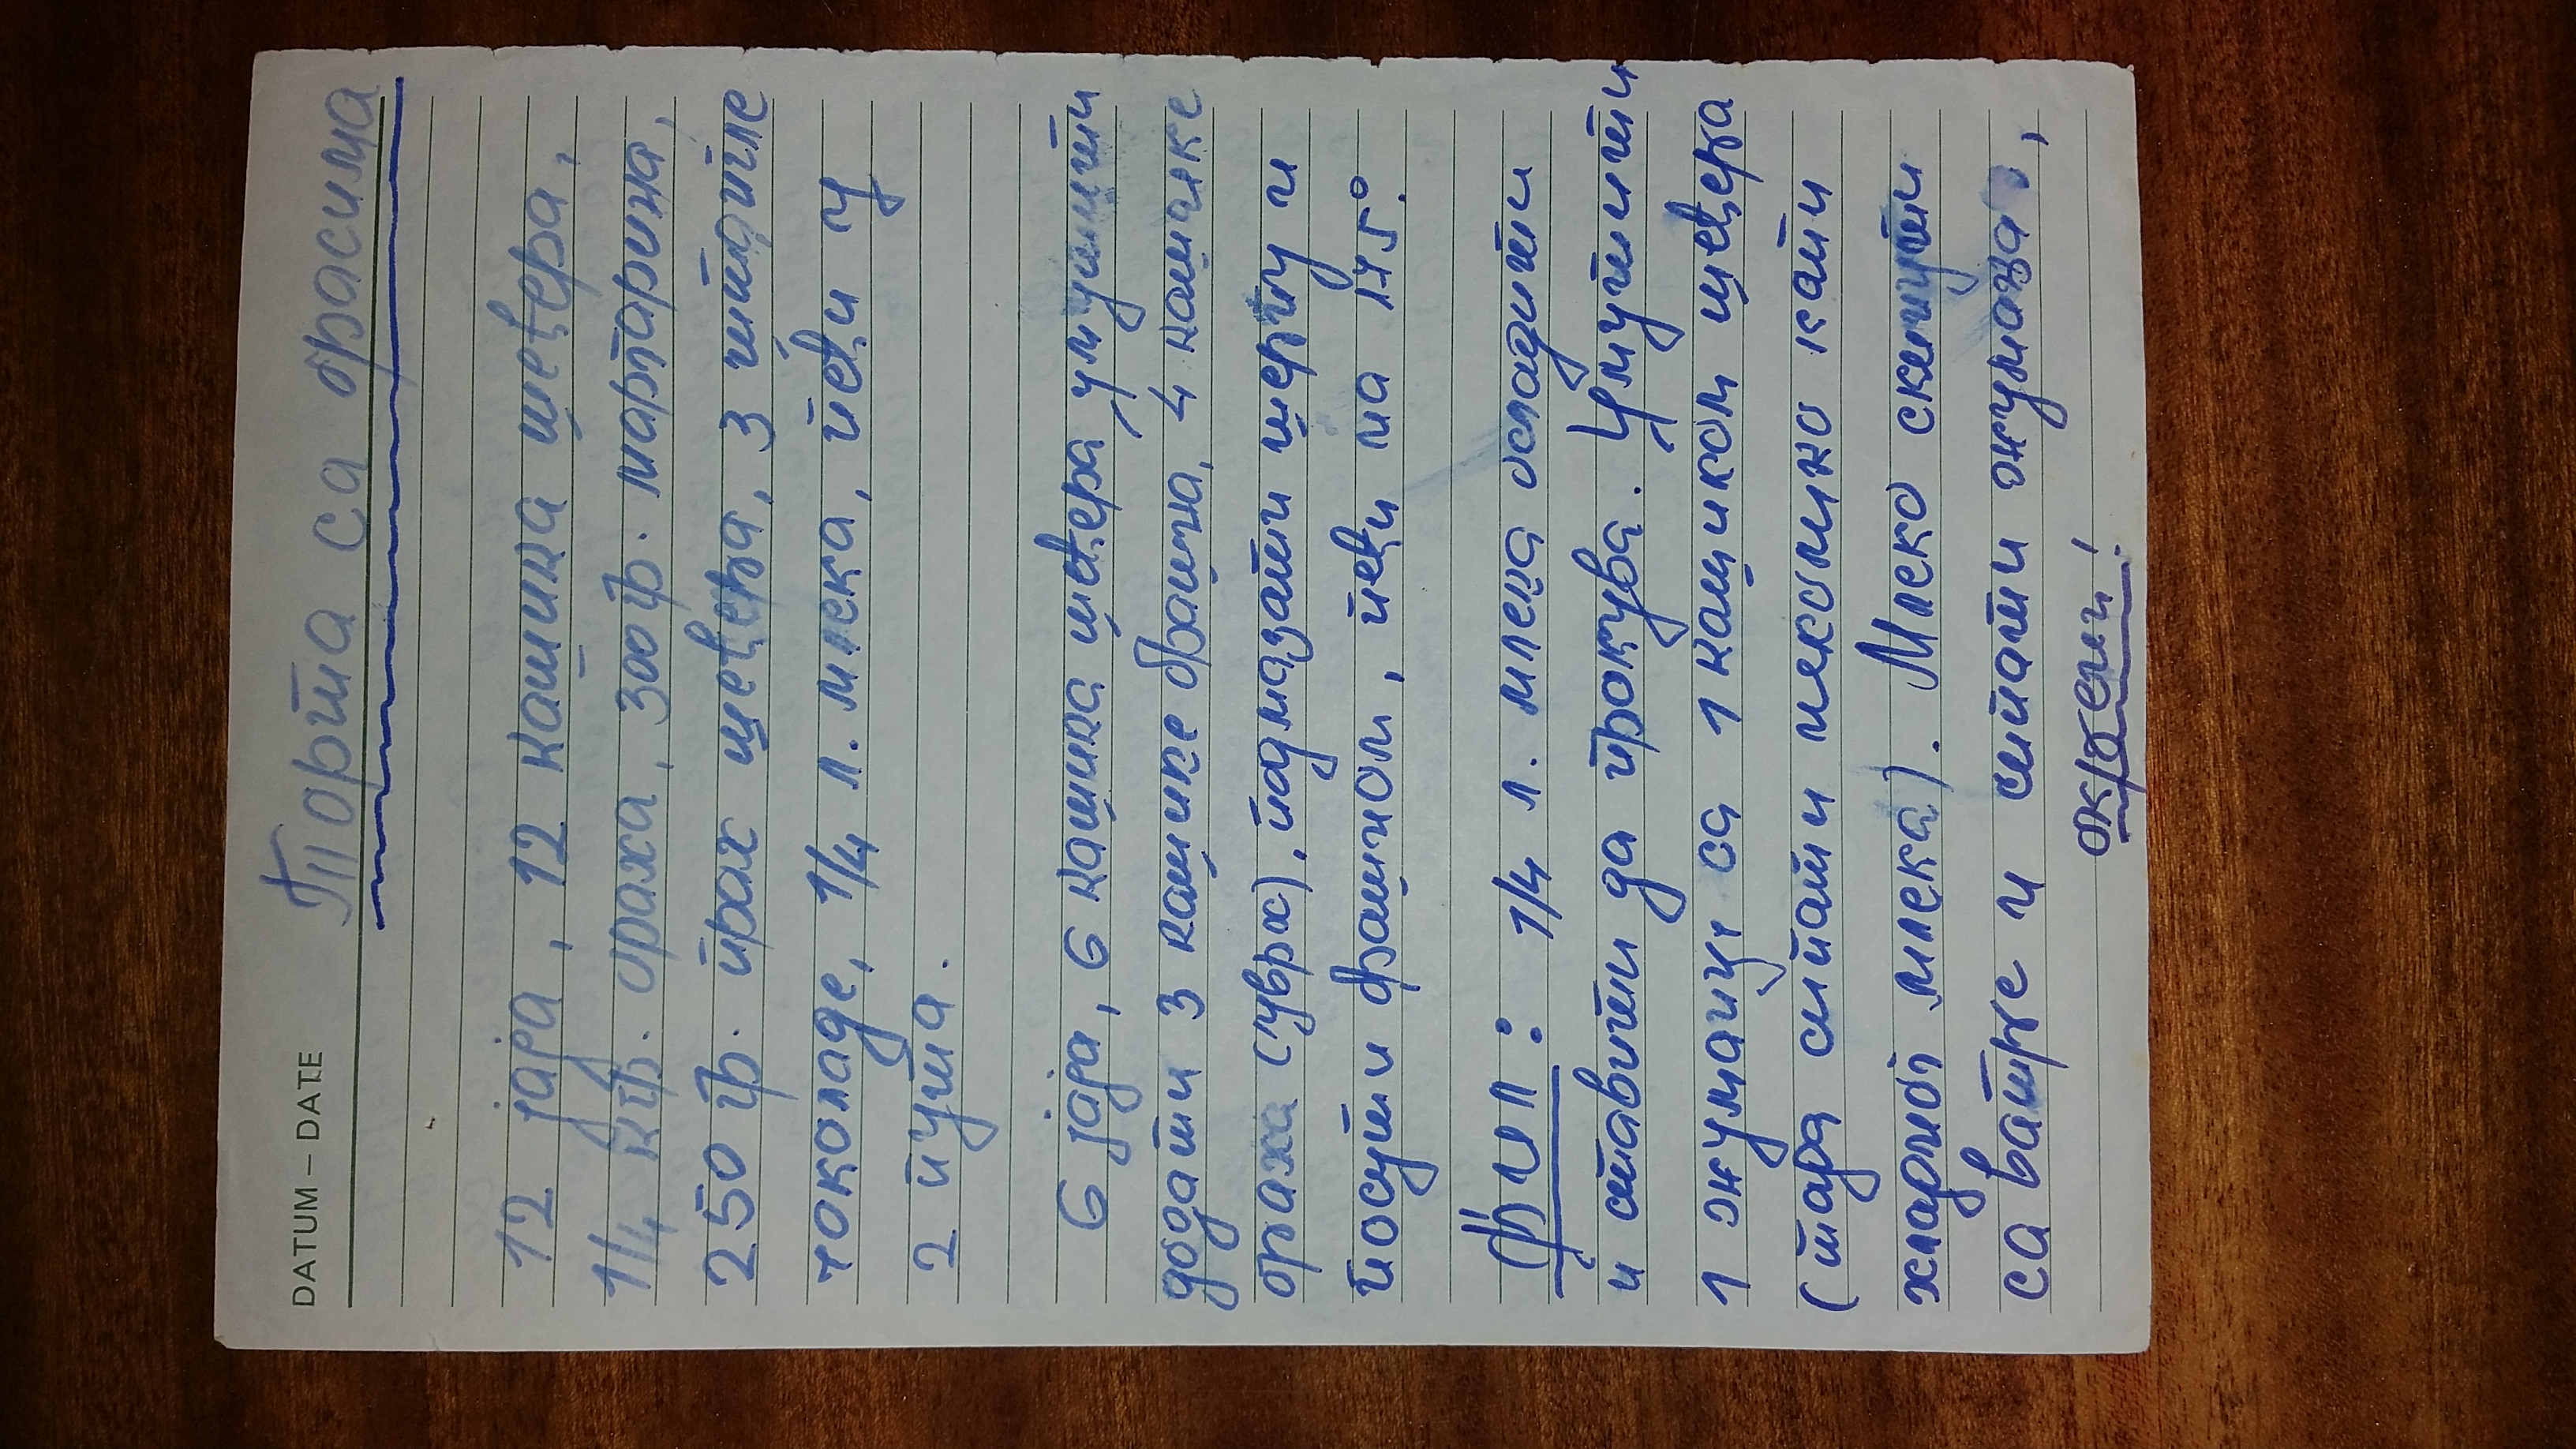 DATUM – DATE
Торта са орасима
12 јаја, 12 кашика шећера,
1/4 кгр. ораха, 300 гр. маргарина,
250 гр. прах шећера, 3 штангле
чоколаде, 1/4 л. млека, пећи у
2 пута.
6 јаја, 6 кашика шећера умутити
додати 3 кашике брашна, 4 кашике
ораха (уврх), подмазати шерпу и
посути брашном, пећи на 175°.
Фил: 1/4 л. млека осладити
и ставити да прокува. Умутити
1 жуманце са 1 кашиком шећера
(тада сипати неколико капи
хладног млека). Млеко скинути
са ватре и сипати жуманца,
окрени!